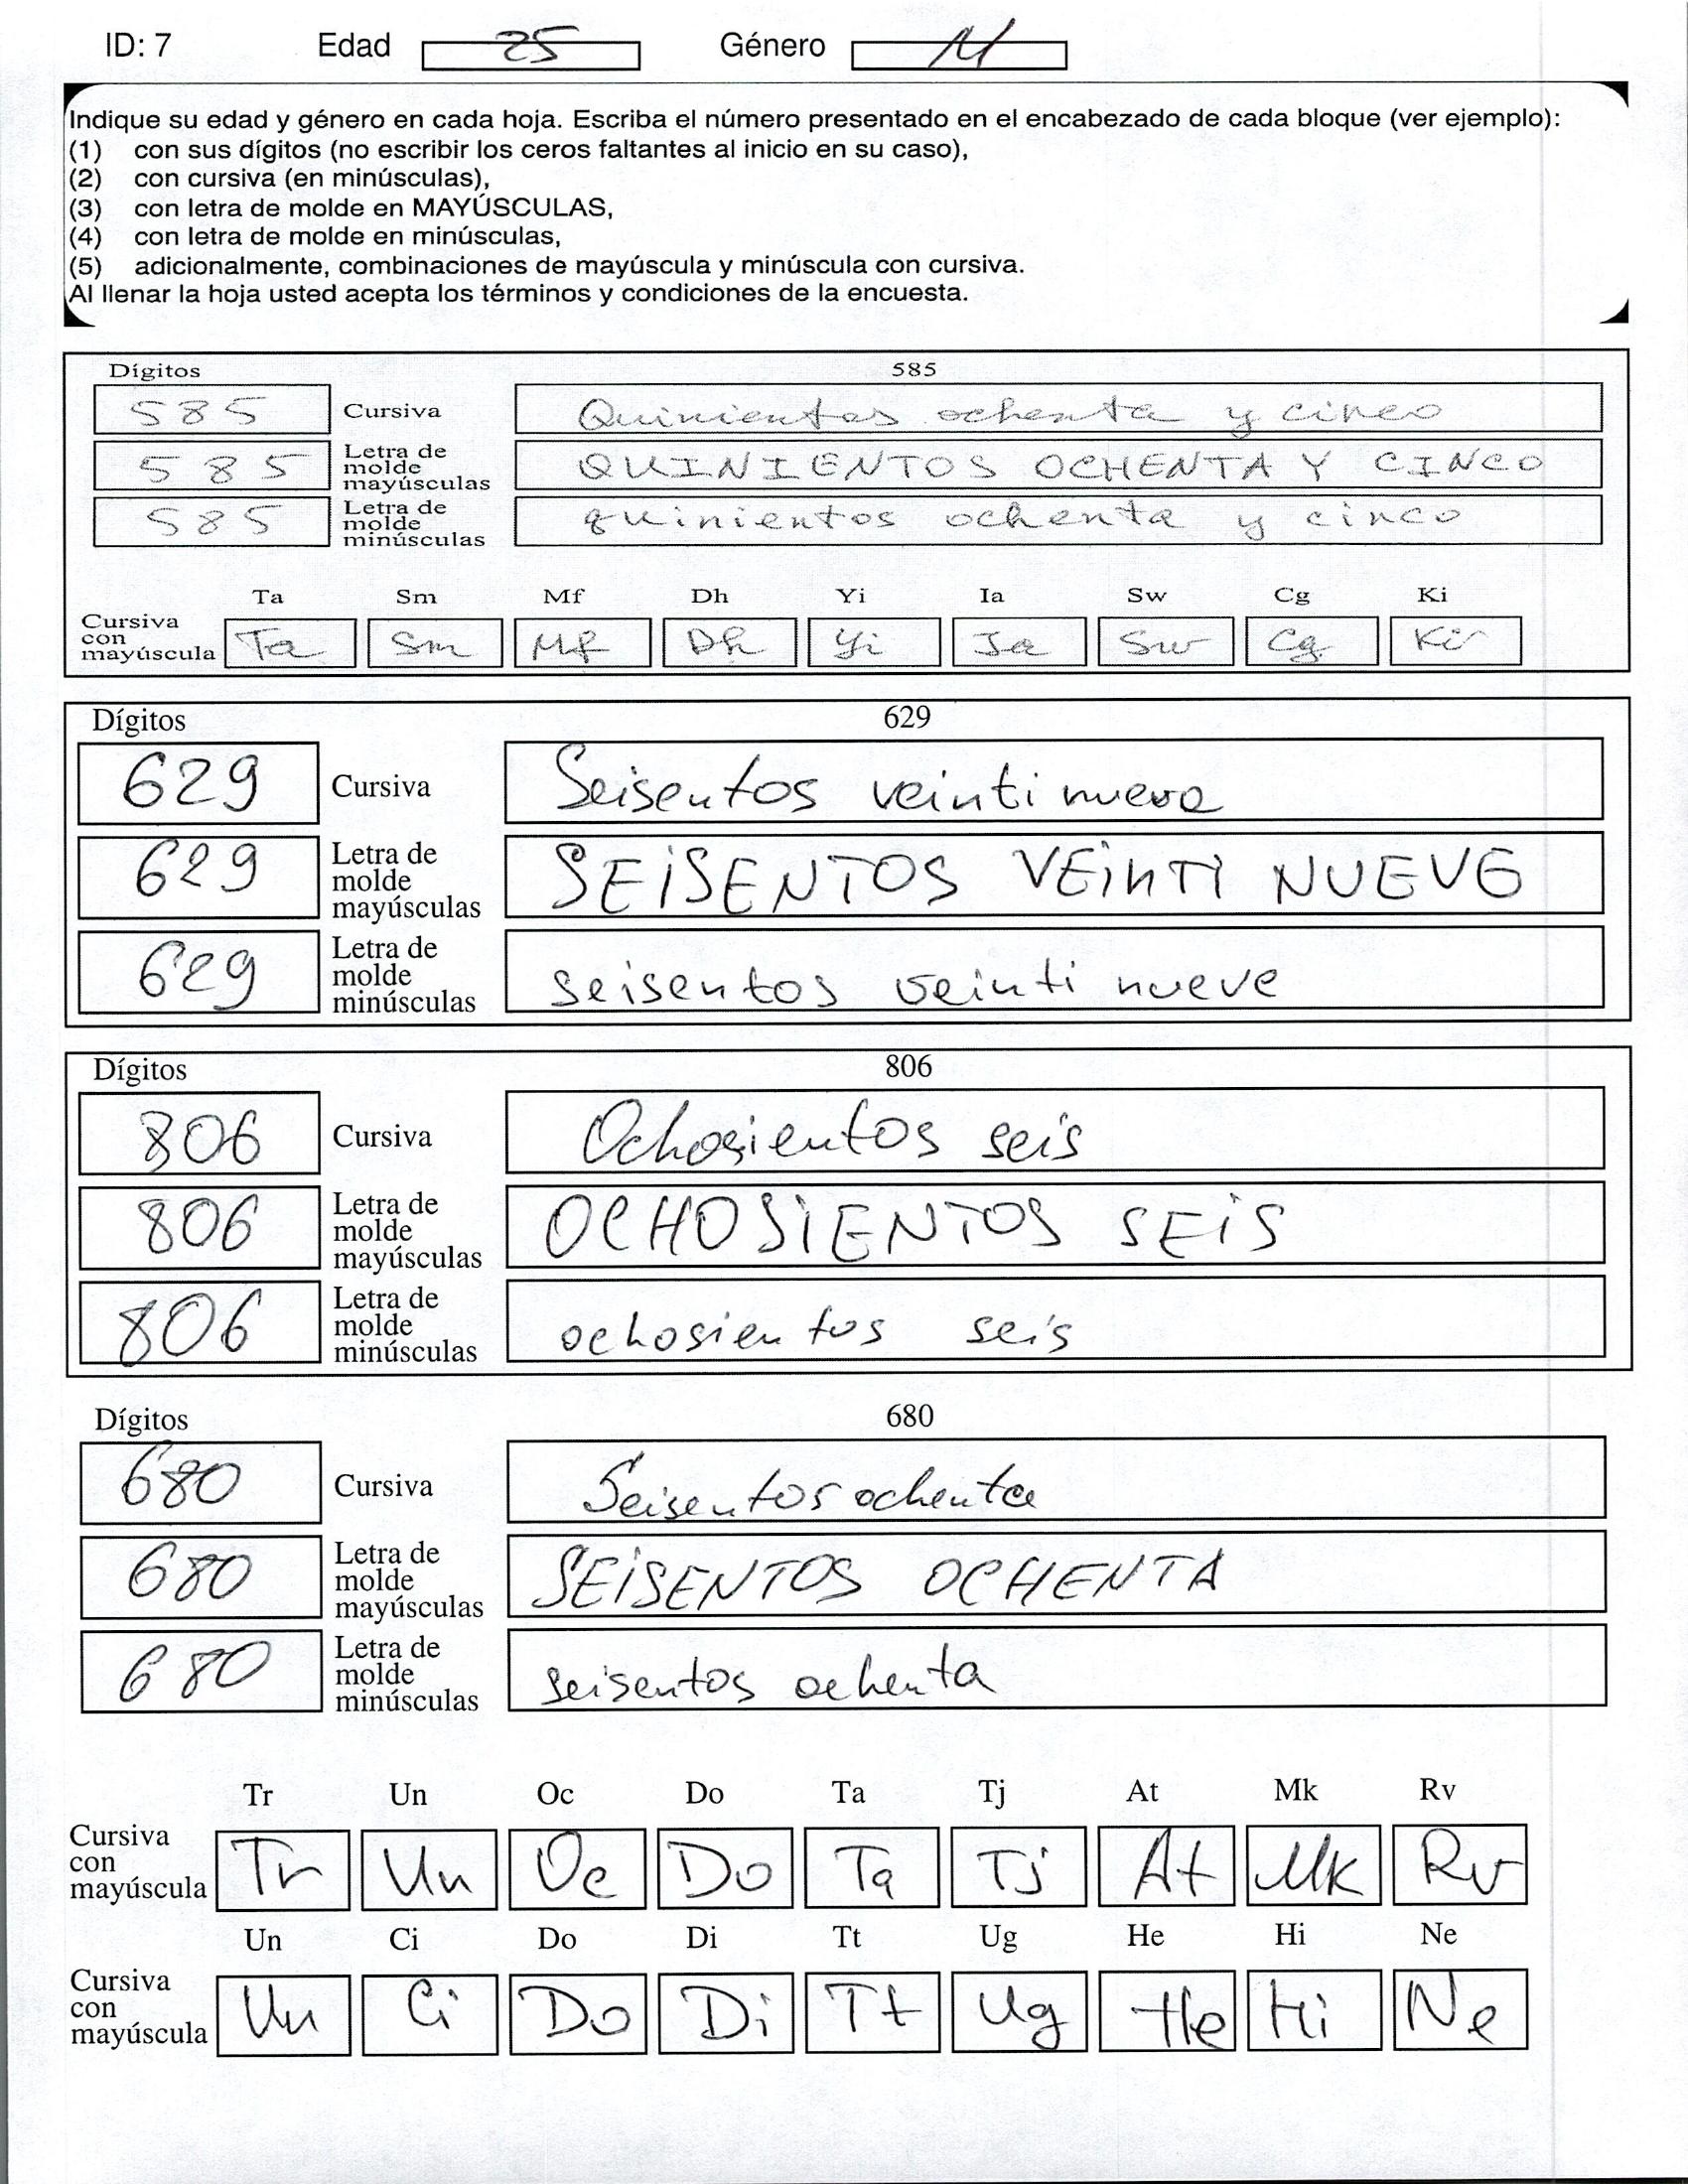 ID: 7 Edad 25 Género M
Indique su edad y género en cada hoja. Escriba el número presentado en el encabezado de cada bloque (ver ejemplo):
(1) con sus dígitos (no escribir los ceros faltantes al inicio en su caso),
(2) con cursiva (en minúsculas),
(3) con letra de molde en MAYÚSCULAS,
(4) con letra de molde en minúsculas,
(5) adicionalmente, combinaciones de mayúscula y minúscula con cursiva.
Al llenar la hoja usted acepta los términos y condiciones de la encuesta.
Dígitos 585
585 Cursiva Quinientos ochenta y cinco
585 Letra de molde mayúsculas QUINIENTOS OCHENTA Y CINCO
585 Letra de molde minúsculas quinientos ochenta y cinco
Ta Sm Mf Dh Yi Ia Sw Cg Ki
Cursiva con mayúscula Ta Sm Mf Dh Yi Ia Sw Cg Ki
Dígitos 629
629 Cursiva Seisentos veinti nueve
629 Letra de molde mayúsculas SEiSENTOS VEiNTi NUEVE
629 Letra de molde minúsculas seisentos veinti nueve
Dígitos 806
806 Cursiva Ochosientos seis
806 Letra de molde mayúsculas OCHOSiENTOS SEiS
806 Letra de molde minúsculas ochosientos seis
Dígitos 680
680 Cursiva Seisentos ochenta
680 Letra de molde mayúsculas SEiSENTOS OCHENTA
680 Letra de molde minúsculas seisentos ochenta
Tr Un Oc Do Ta Tj At Mk Rv
Cursiva con mayúscula Tr Un Oc Do Ta Tj At Mk Rv
Un Ci Do Di Tt Ug He Hi Ne
Cursiva con mayúscula Un Ci Do Di Tt Ug He Hi Ne